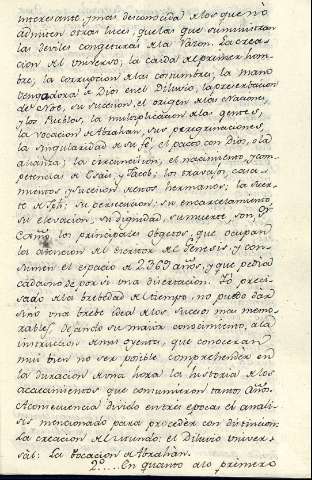 interesante, y mas desconocida á los que nó
admiten otras luces, que las que suministran
las deviles congeturas de la razon. La crea-
cion del Universo, la caida del primer hom-
bre, la corrupcion de las costumbres, la mano
vengadora de Dios en el Diluvio, la preservacion
de Noe, su sucesion, el origen de las Naciones,
y los Pueblos, la multiplicacion de la gentes,
la vocacion de Abrahan, sus peregrinaciones,
la singularidad de su fé, el pacto con Dios, ó la
alianza; la circuncision, el nacimiento, y com-
petencias de Esaú, y Jacob; los travajos, casa-
mientos, y sucesion de estos hermanos; la suer-
te de Jph; su persecucion, su encarcelamiento,
su elevacion, su dignidad, su muerte son Sr
los principales objetos, que ocupan
la atencion del Escritor del Genesis, y con-
sumen el espacio de 2369 años, y que pedia
cada uno de por si una disertacion. Yó preci-
sado de la brebedad del tiempo, no puedo dar
sino una brebe idea de los sucesos mas memo-
rables, dejando su maior conocimiento, a la
instruccion de mis oyentes, que conoceran
mui bien no ser posible comprehender en
la duracion de una hora la historia de los
acaecimientos que consumieron tantos años.
A consecuencia divido en tres epocas el anali-
sis mencionado para proceder con distincion:
La creacion del mundo: el Diluvio Univer-
sál: La vocacion de Abrahàn.
2º.... En quanto a lo primero